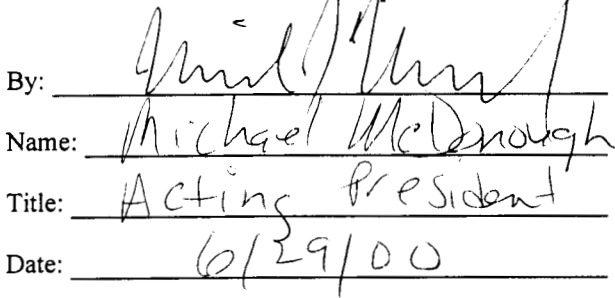 By:
Name: Michael McDonough
Title: Acting President
Date: 6/29/00